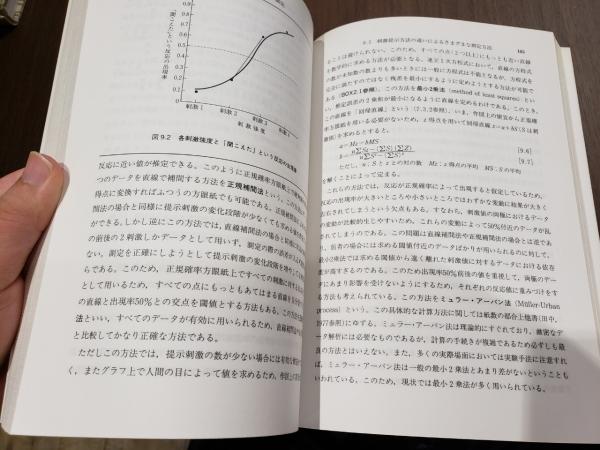 0.9
0.8
0.7
0.6
0.5
0.4
0.3
0.2
0.1
0
「聞こえた」という反応の出現率
刺激1
刺激2
刺激3
刺激4
刺激強度
図9.2 各刺激強度と「聞こえた」という反応の出現率
反応に近い値が推定できる。このように正規確率方眼紙上で
つのデータを直線で補間する方法を正規補間法という。
得点に変換すればふつうの方眼紙でも可能である。正規補間法
間法の場合と同様に提示刺激の変化段階が少なくても
ができる。しかし逆にこの方法では、直線補間法の場合と同様に
の前後の2刺激しかデータとして用いず、測定の際の誤差が
ない。測定を正確にしようとして提示刺激の変化段階を増やして
らである。このため、正規確率方眼紙上ですべての刺激に対する
として用いるため、すべての点にもっともあてはまる直線を
の直線と出現率50%との交点を閾値とする方法もある。
法といい、すべてのデータが有効に用いられるため、直線補間法
と比較してかなり正確な方法である。
ただしこの方法では、提示刺激の数が少ない場合には
く、またグラフ上で人間の目によって値を求めるため、
9.2 刺激提示方法の違いによるさまざまな測定方法
165
ことは避けられない。このため、すべての点(2つ以上)にもっとも近い直線
を数学的に求める方法が必要となる。連立1次方程式において、直線の方程式
の数が未知数の数よりも多いときには一般に方程式は不能となるが、方程式を
完全に満たすのではなく残差を最小にするように定めようとする方法が可能で
ある(BOX2.1参照)。この方法を最小2乗法 (method of least squares) とい
い、推定誤差の2乗和が最小になるように直線を定めるわけである。このとき、
この直線を「回帰直線」という(7.3.2参照)。いま、作図上の煩雑から正規確
率方眼紙を用いる必要がないため、z得点を用いて回帰直線z=a+bS(Sは刺
激値)を求めるとすると、
a=Mz−bMS
[9.6]
[9.7]
ただし、n:Sとzとの対の数 Mz:z得点の平均 MS:Sの平均
を解くことによって定まる。
これらの方法では、反応が正規確率によって出現すると仮定しているため、
反応の出現率が大きいところや小さいところではわずかな変動に結果が大きく
左右されてしまうという欠点もある。すなわち、刺激値の両端におけるデータ
の変動が比較的生じやすいため、これらの変動によって50%付近のデータが乱
されてしまうのである。この問題は直線補間法や正規補間法の場合とは逆であ
り、前者の場合には求める閾値付近のデータばかりが用いられるのに対して、
最小2乗法では求める閾値から遠く離れた刺激値に対するデータにおける依存
度が高すぎるのである。このため出現率50%前後の値を重視して、両端のデー
タにあまり影響を受けないようにするため、それぞれの反応値に重みづけをす
る方法も考えられている。この方法をミュラー・アーバン法 (Müller-Urban
process) という。この具体的な計算方法に関しては紙数の都合上他書(田中,
1977参照)にゆずる。ミュラー・アーバン法は理論的にすぐれており、緻密なデ
ータ解析には必要なものであるが、計算の手続きが複雑であるため必ずしも最
良の方法とはいえない。また、多くの実際場面においては実験手法に注意すれ
ば、ミュラー・アーバン法は一般の最小2乗法とあまり差がないということも
いわれている。このため、現状では最小2乗法が多く用いられている。